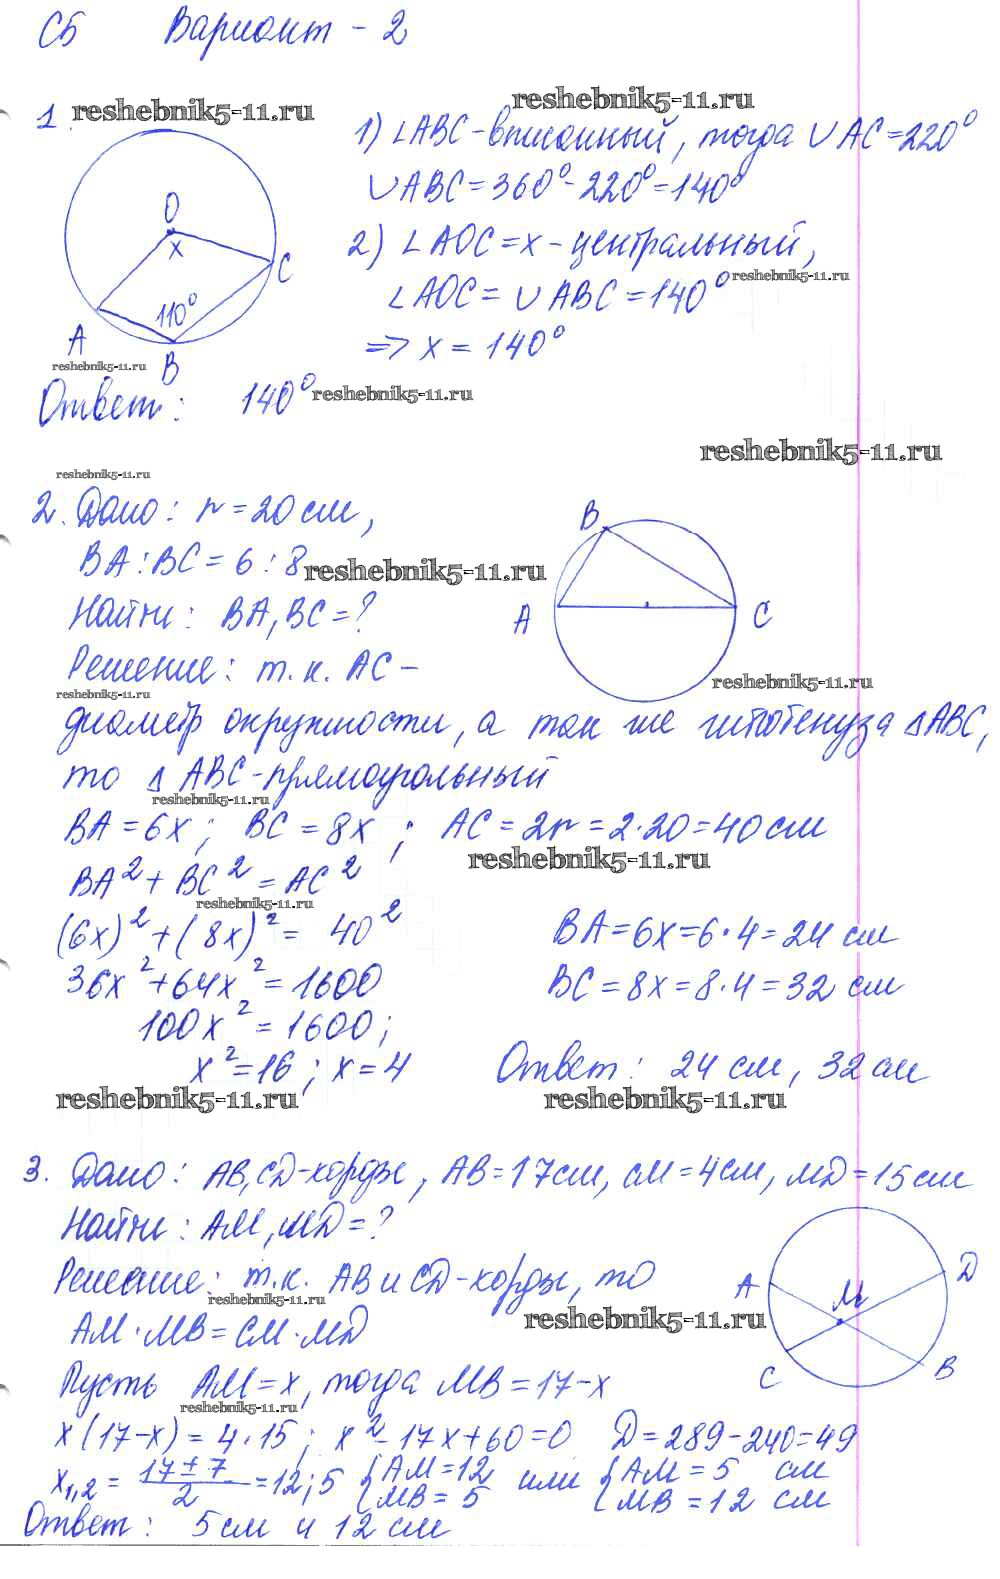 С5 Вариант - 2
reshebnik5-11.ru
reshebnik5-11.ru
1.
1) ∠ABC - вписанный, тогда ∪AC = 220°
∪ABC = 360° - 220° = 140°
O
x
C
110°
A
B
2) ∠AOC = x - центральный,
reshebnik5-11.ru
∠AOC = ∪ABC = 140°
=> x = 140°
reshebnik5-11.ru
Ответ: 140°
reshebnik5-11.ru
reshebnik5-11.ru
reshebnik5-11.ru
2. Дано: r = 20 см,
BA : BC = 6 : 8
reshebnik5-11.ru
Найти: BA, BC = ?
B
A
C
Решение: т.к. AC -
reshebnik5-11.ru
reshebnik5-11.ru
диаметр окружности, а так же гипотенуза ΔABC,
то Δ ABC - прямоугольный
reshebnik5-11.ru
BA = 6x; BC = 8x; AC = 2r = 2·20 = 40 см
reshebnik5-11.ru
BA² + BC² = AC²
reshebnik5-11.ru
(6x)² + (8x)² = 40²
36x² + 64x² = 1600
100x² = 1600;
x² = 16; x = 4
BA = 6x = 6·4 = 24 см
BC = 8x = 8·4 = 32 см
Ответ: 24 см, 32 см
reshebnik5-11.ru
reshebnik5-11.ru
3. Дано: AB, CD - хорды, AB = 17 см, CM = 4 см, MD = 15 см
Найти: AM, MD = ?
Решение: т.к. AB и CD - хорды, то
reshebnik5-11.ru
A
M
D
C
B
reshebnik5-11.ru
AM · MB = CM · MD
Пусть AM = x, тогда MB = 17 - x
reshebnik5-11.ru
x(17-x) = 4·15; x² - 17x + 60 = 0 D = 289 - 240 = 49
x₁,₂ = (17 ± 7)/2 = 12; 5 { AM = 12 или { AM = 5 см
MB = 5 MB = 12 см
Ответ: 5 см и 12 см